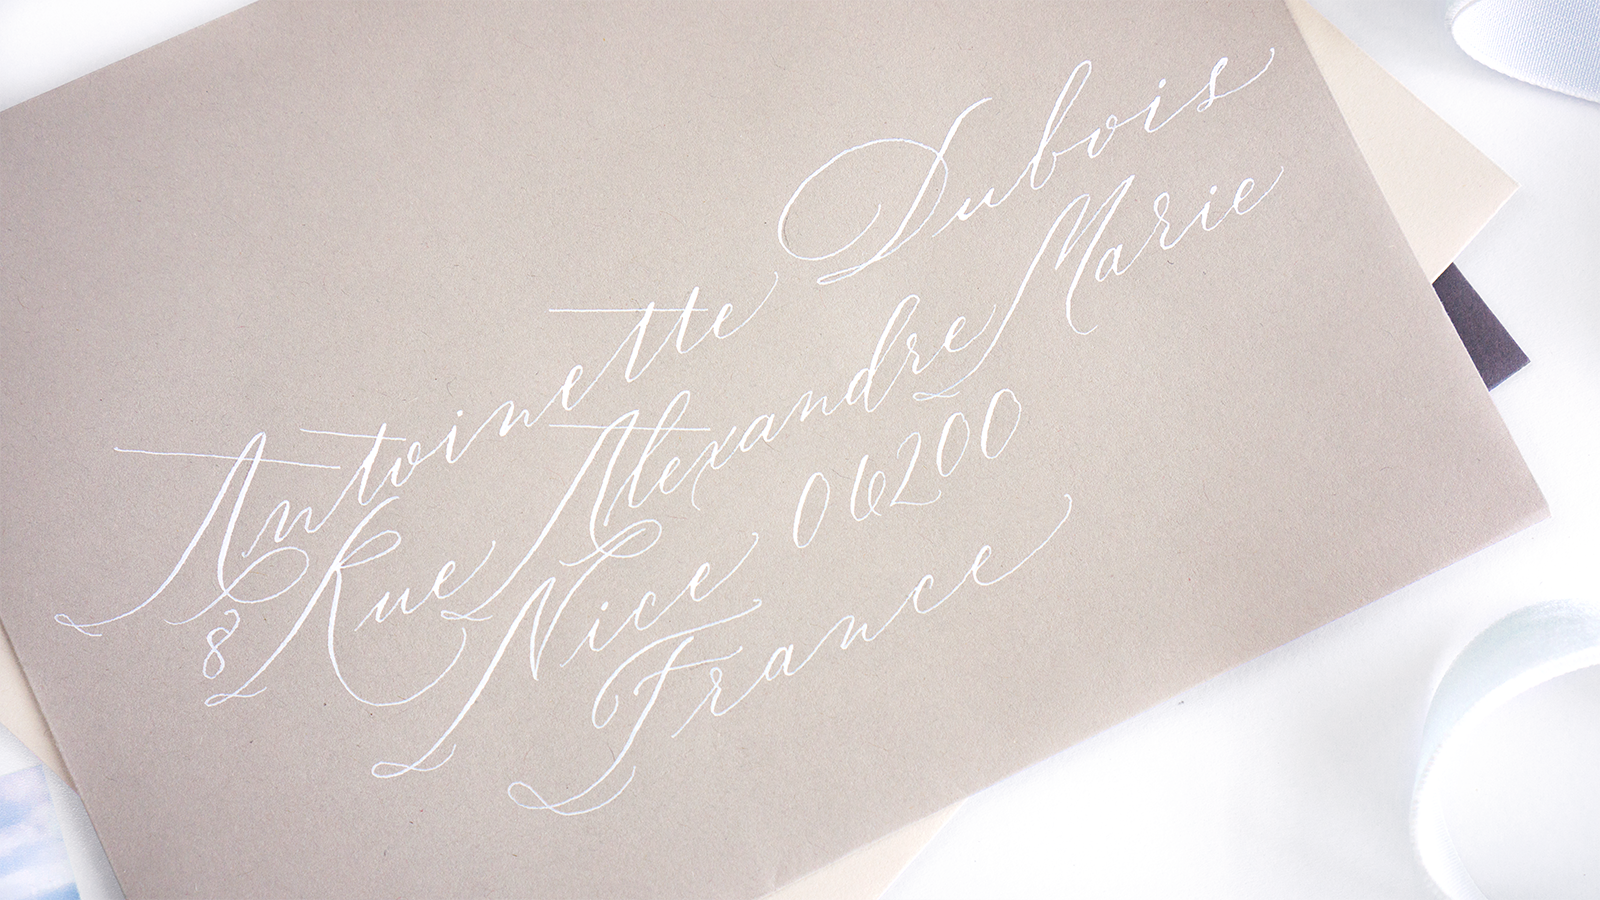 Antoinette Dubois
8 Rue Alexandre Marie
Nice 06200
France